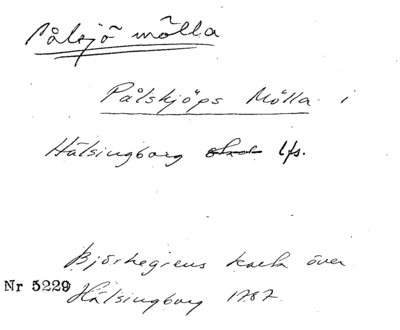 Pålsjö mölla
Pålskjöps Mölla i
Hälsingborg lfs.
Björkegrens karta över
Nr 5229 Hälsingborg 1787.